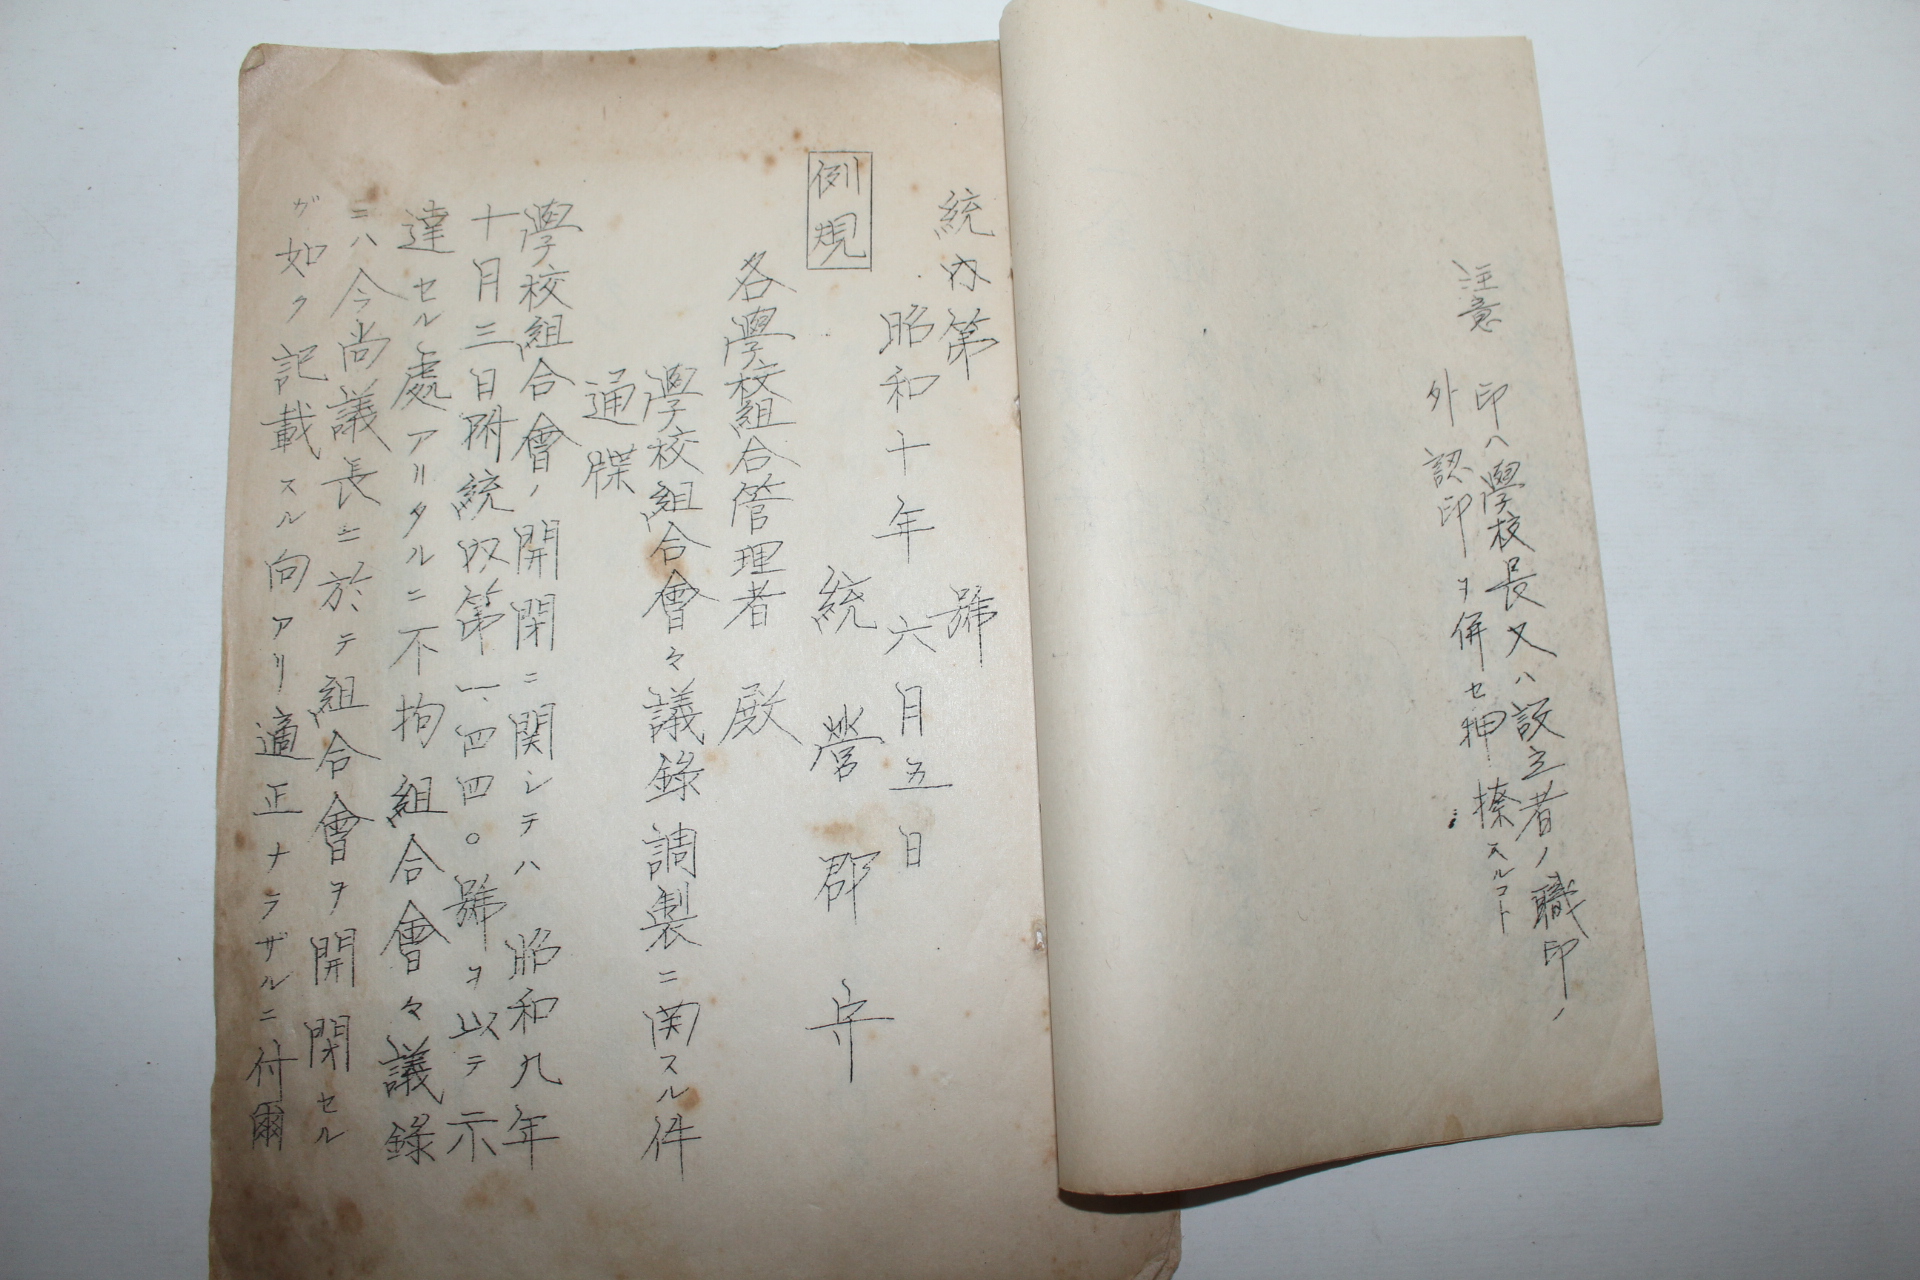 注意
印ハ學校長又ハ設立者ノ職印ノ
外認印ヲ併セ押捺スルコト
統内第　　　號
昭和十年六月五日
例規
統營郡守
各學校組合管理者殿
學校組合會々議錄調製ニ関スル件
通牒
學校組合會ノ開閉ニ関シテハ昭和九年
十月三日附統収第一、四四〇號ヲ以テ示
達セル處アリタルニ不拘組合會々議錄
ニハ今尚議長ニ於テ組合會ヲ開閉セル
ガ如ク記載スル向アリ適正ナラザルニ付爾